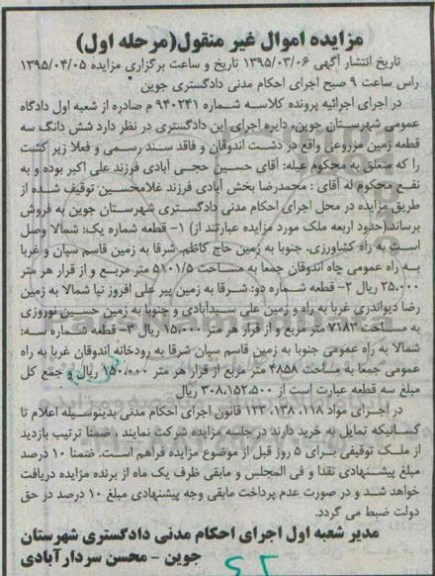 مزایده اموال غیر منقول(مرحله اول)
تاریخ انتشار آگهی ۱۳۹۵/۰۳/۰۶ تاریخ و ساعت برگزاری مزایده ۱۳۹۵/۰۴/۰۵
راس ساعت ۹ صبح اجرای احکام مدنی دادگستری جوین
در اجرای اجرائیه پرونده کلاسه شماره ۹۴۰۲۴۱ م صادره از شعبه اول دادگاه
عمومی شهرستان جوین، دایره اجرای این دادگستری در نظر دارد شش دانگ سه
قطعه زمین مزروعی واقع در دشت اندوقان و فاقد سند رسمی و فعلا زیر کشت
را که متعلق به محکوم علیه: آقای حسین حجی آبادی فرزند علی اکبر بوده و به
نفع محکوم له آقای : محمدرضا بخش آبادی فرزند غلامحسین توقیف شده از
طریق مزایده در محل اجرای احکام مدنی دادگستری شهرستان جوین به فروش
برساند.(حدود اربعه ملک مورد مزایده عبارتند از) ۱- قطعه شماره یک: شمالا وصل
است به راه کشاورزی، جنوبا به زمین حاج کاظم، شرقا به زمین قاسم سپان و غربا
به راه عمومی چاه اندوقان جمعا به مساحت ۵۱۰۱/۵ متر مربع و از قرار هر متر
۲۵،۰۰۰ ریال ۲- قطعه شماره دو: شرقا به زمین پیر علی افروز نیا شمالا به زمین
رضا دیواندری غربا به راه و زمین علی سیدآبادی و جنوبا به زمین حسین نوروزی
به مساحت ۷۱۸۳ متر مربع و از قرار هر متر ۱۵،۰۰۰ ریال ۳- قطعه شماره سه:
شمالا به راه عمومی جنوبا به زمین قاسم سپان شرقا به رودخانه اندوقان غربا به راه
عمومی جمعا به مساحت ۴۸۵۸ متر مربع از قرار هر متر ۱۵۰،۰۰۰ ریال و جمع کل
مبلغ سه قطعه عبارت است از ۳۰۸،۱۵۲،۵۰۰ ریال
در اجرای مواد ۱۱۸، ۱۳۸، ۱۲۳ قانون اجرای احکام مدنی بدینوسیله اعلام تا
کسانیکه تمایل به خرید دارند در جلسه مزایده شرکت نمایند . ضمنا ترتیب بازدید
از ملک توقیفی برای ۵ روز قبل از موضوع مزایده فراهم است. ضمنا ۱۰ درصد
مبلغ پیشنهادی نقدا و فی المجلس و مابقی ظرف یک ماه از برنده مزایده دریافت
خواهد شد و در صورت عدم پرداخت مابقی وجه پیشنهادی مبلغ ۱۰ درصد در حق
دولت ضبط می گردد.
مدیر شعبه اول اجرای احکام مدنی دادگستری شهرستان
جوین - محسن سردارآبادی